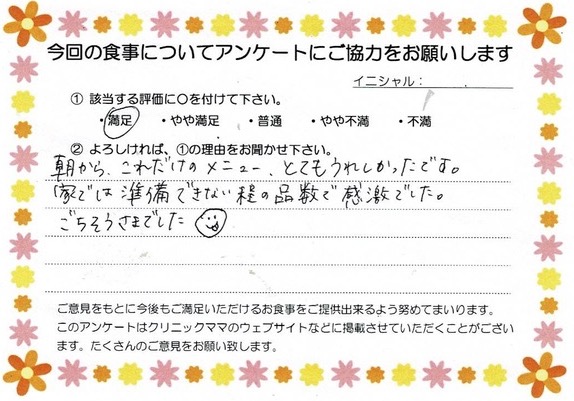 今回の食事についてアンケートにご協力をお願いします
イニシャル：
① 該当する評価に○を付けて下さい。
・満足 ・やや満足 ・普通 ・やや不満 ・不満
② よろしければ、①の理由をお聞かせ下さい。
朝から、これだけのメニュー、とてもうれしかったです。
家では準備できない程の品数で感激でした。
ごちそうさまでした
ご意見をもとに今後もご満足いただけるお食事をご提供出来るよう努めてまいります。
このアンケートはクリニックママのウェブサイトなどに掲載させていただくことがござい
ます。たくさんのご意見をお願い致します。